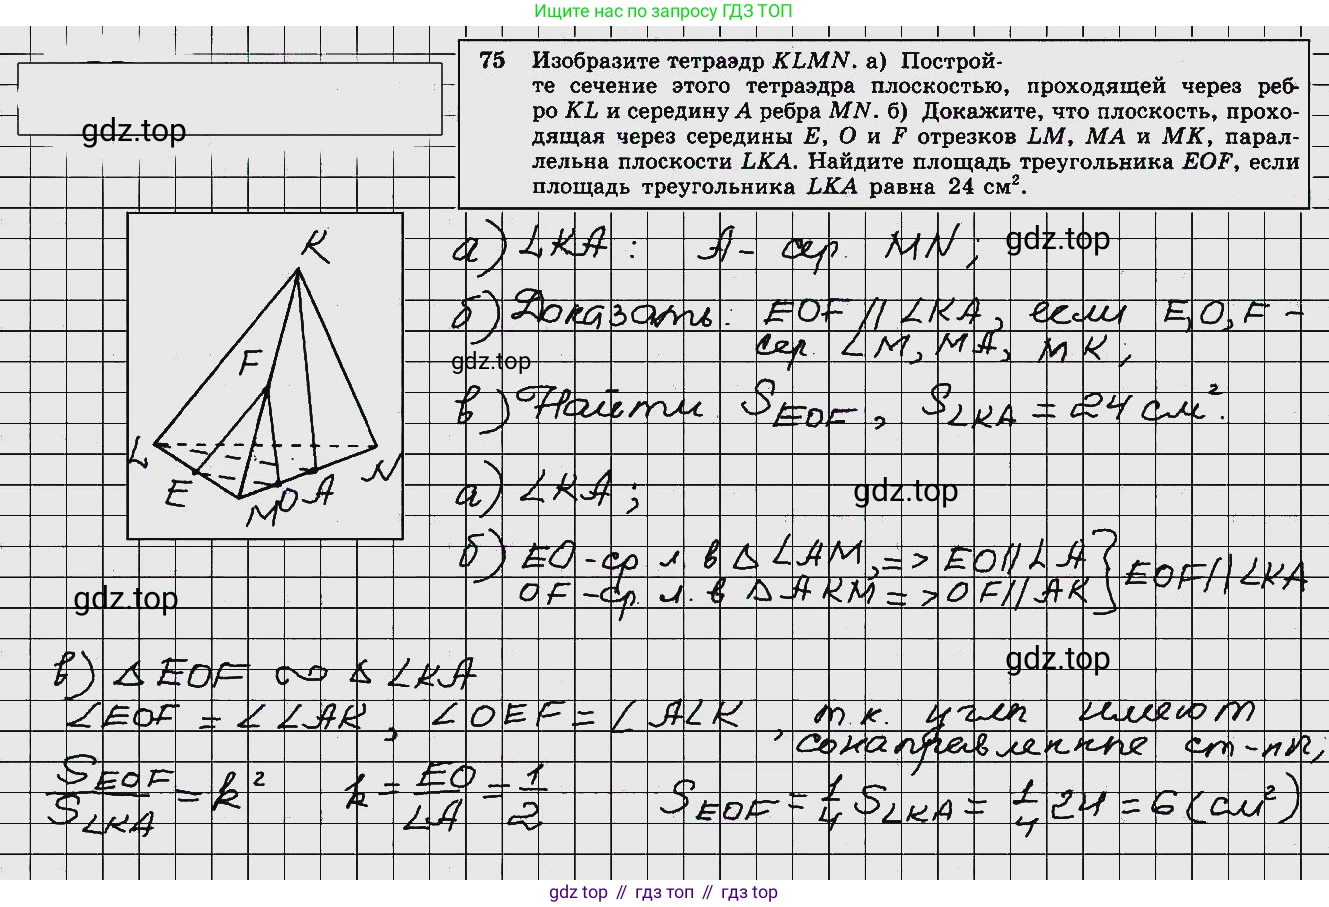 Ищите нас по запросу ГДЗ ТОП
75 Изобразите тетраэдр KLMN. а) Построй-
те сечение этого тетраэдра плоскостью, проходящей через реб-
ро KL и середину A ребра MN. б) Докажите, что плоскость, прохо-
дящая через середины E, O и F отрезков LM, MA и MK, парал-
лельна плоскости LKA. Найдите площадь треугольника EOF, если
площадь треугольника LKA равна 24 см².
gdz.top
K
F
L
E
M
O
A
N
а) LKA : A - сер. MN;
gdz.top
б) Доказать: EOF || LKA, если E, O, F -
сер. LM, MA, MK;
gdz.top
в) Найти S_EOF, S_LKA = 24 см².
а) LKA;
gdz.top
б) EO - ср. л. в Δ LAM, => EO || LA } EOF || LKA
OF - ср. л. в Δ AKM => OF || AK
gdz.top
gdz.top
в) Δ EOF ∾ Δ LKA
∠EOF = ∠LAK, ∠OEF = ∠ALK, т.к. углы имеют
сонаправленные ст-ны,
S_EOF / S_LKA = k² k = EO / LA = 1/2 S_EOF = 1/4 S_LKA = 1/4 24 = 6 (см²)
gdz top // гдз топ // гдз top